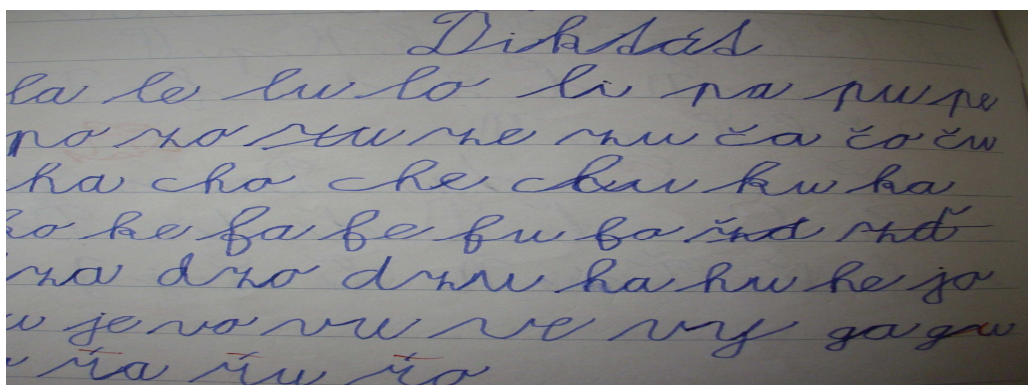 Diktát
la le lu lo li pa pu pe
po zo zu ze zu ča čo ču
ha cho che chu ku ka
ko ke fa fe fu fo
dza dzo dzu ha hu he jo
ju je vo vu ve vy ga gu
ša šu šo